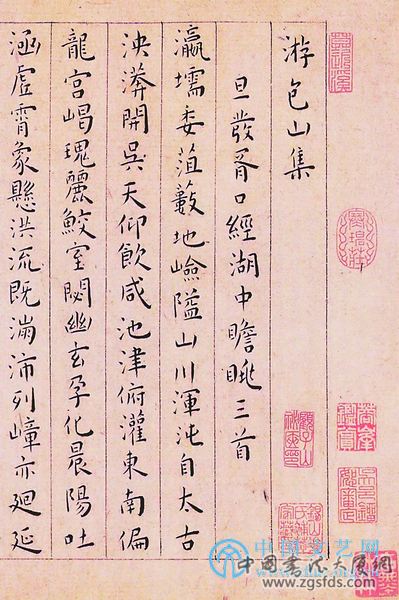 游包山集
旦發胥口經湖中瞻眺三首
瀛壖委菹藪地嶮隘山川渾沌自太古
泱漭開吳天仰飲咸池津俯灌東南偏
龍宮瑰麗鮫室閟幽玄孕化晨陽吐
涵虛霄象懸洪流既沛列嶂亦迴延
中国文艺网
中國書法大展網
www.zgsfds.com